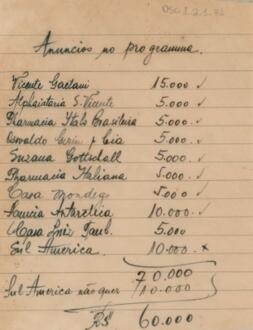 DSC 1.2.1.71
Anuncios no programma.
Vicente Gaetani 15.000 ✓
Alphaiataria S. Vicente 5.000 ✓
Pharmacia Italo Brasileira 5.000 ✓
Oswaldo & Cia 5.000 ✓
Suzana Gottschall 5.000 ✓
Pharmacia Italiana 5.000 ✓
Casa Mondego 5.000 ✓
Antarctica 10.000 ✓
Casa Luiz 5.000
Sul America 10.000 x
70.000
Sul America não quer 10.000
R$ 60.000